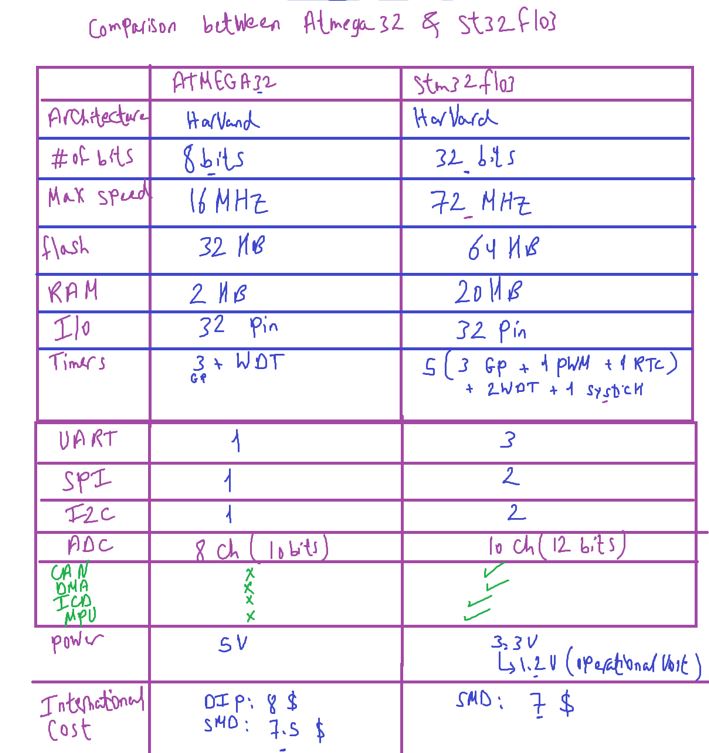 Comparison between Atmega32 & St32f103
ATMEGA32 Stm32f103
Architecture Harvard Harvard
# of bits 8 bits 32 bits
Max speed 16 MHZ 72 MHZ
flash 32 KB 64 KB
RAM 2 KB 20 KB
I/o 32 Pin 32 Pin
Timers 3 + WDT 5 (3 GP + 1 PWM + 1 RTC)
GP + 2WDT + 1 sys
UART 1 3
SPI 1 2
I2C 1 2
ADC 8 ch (10 bits) 10 ch (12 bits)
CAN x ✓
DMA x ✓
ICD x ✓
MPU x ✓
power 5V 3.3V
↳1.2V (operational Volt)
International DIP: 8 $ SMD: 7 $
Cost SMD: 7.5 $